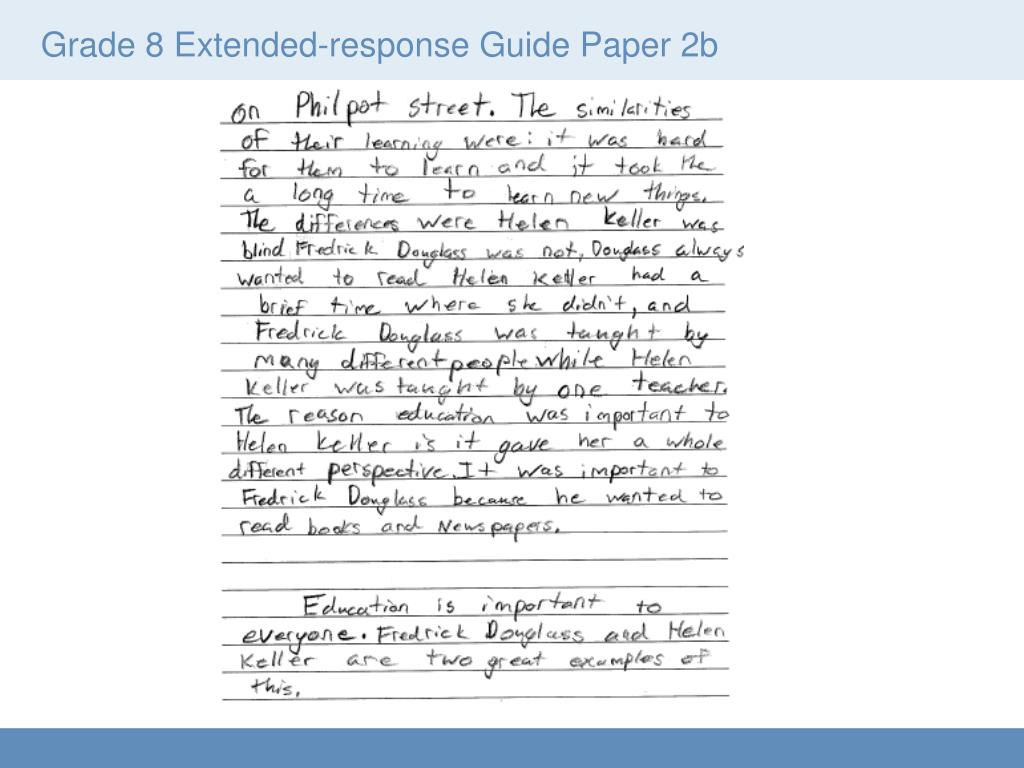 Grade 8 Extended-response Guide Paper 2b
on Philpot street. The similarities
of their learning were: it was hard
for them to learn and it took the
a long time to learn new things.
The differences were Helen Keller was
blind Fredrick Douglass was not, Douglass always
wanted to read Helen Keller had a
brief time where she didn't, and
Fredrick Douglass was taught by
many different people while Helen
Keller was taught by one teacher.
The reason education was important to
Helen Keller is it gave her a whole
different perspective. It was important to
Fredrick Douglass because he wanted to
read books and Newspapers.
Education is important to
everyone. Fredrick Douglass and Helen
Keller are two great examples of
this.